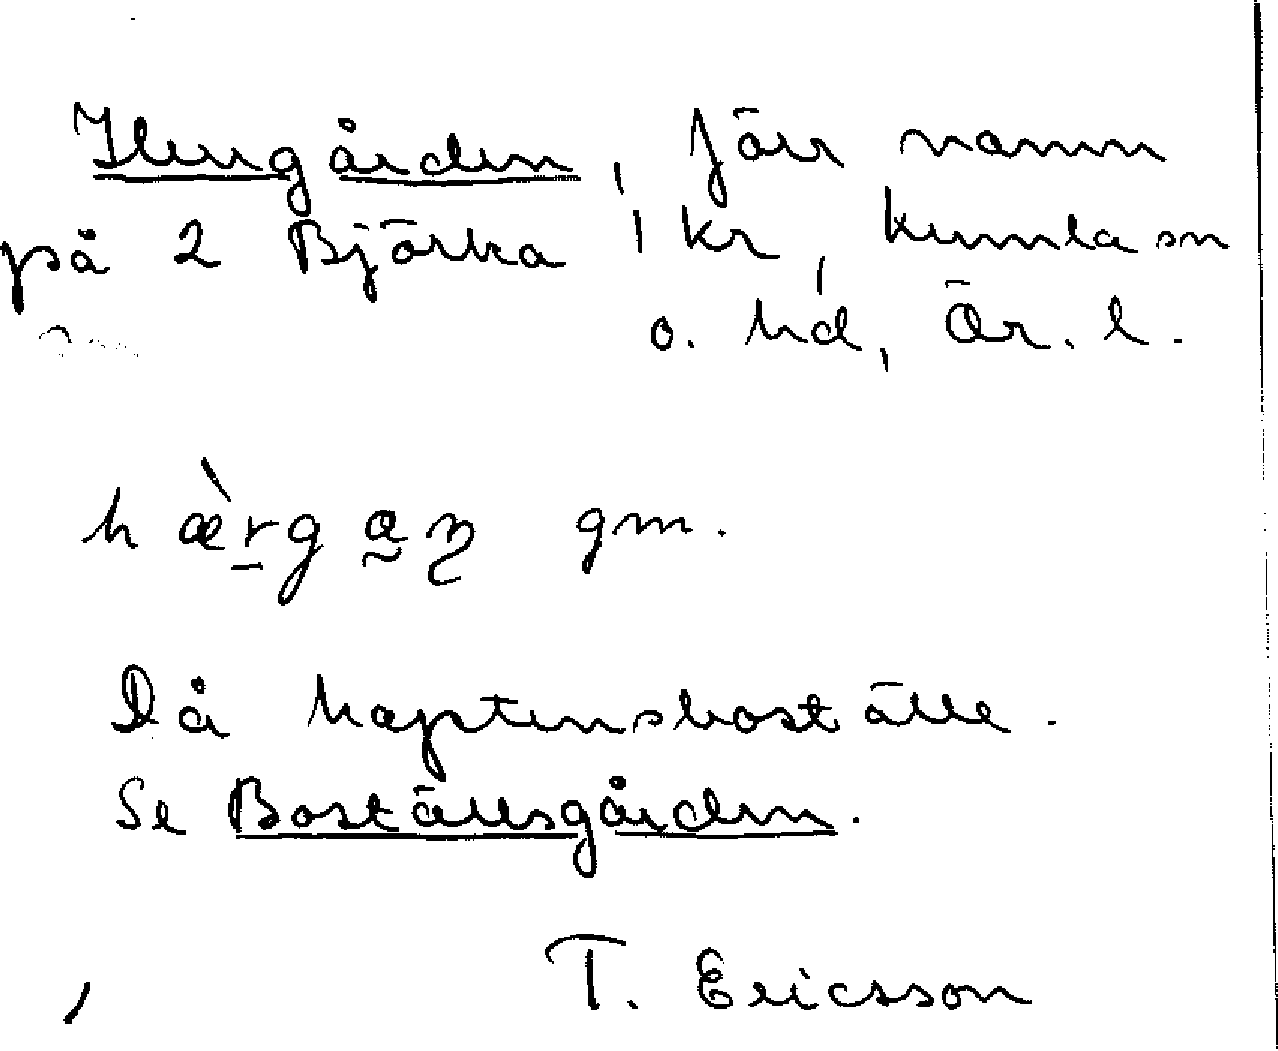 Herrgården, förr namn
på 2 Björka 1 kr, Kumla sn
o. hd, Ör. l.
hæ̀r̲ga̰ɳ gm.
Då kaptensboställe.
Se Boställsgården.
T. Ericsson